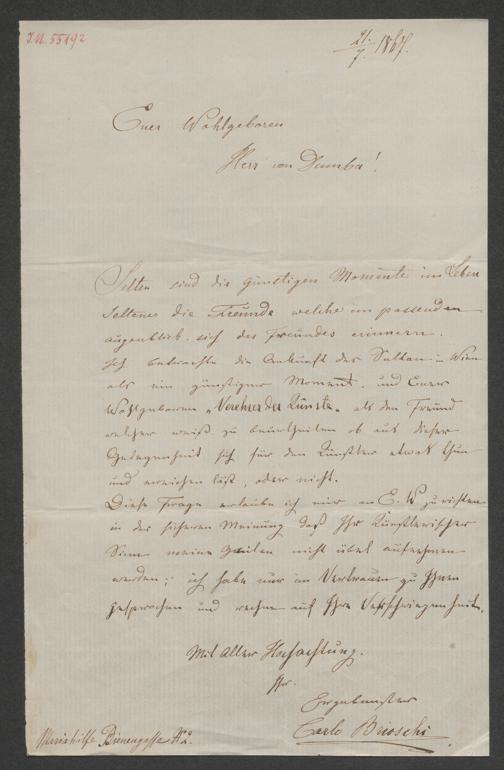 I.N. 55192
21./7. 1867.
Euer Wohlgeboren
Herr von Dumba!
Selten sind die günstigen Momente im Leben
seltener die Freunde welche im passenden
Augenblick sich des Freundes erinnern.
Ich betrachte die Ankunft des Sultan in Wien
als ein günstiger Moment, und Euer
Wohlgeboren „Verehrer der Künste“ als den Freund
welcher weiß zu beurtheilen ob aus dieser
Gelegenheit sich für den Künstler etwas thun
und erreichen läßt, oder nicht.
Diese Frage erlaube ich mir an E. W. zu richten
in der sicheren Meinung daß Ihr Künstlerischer
Sinn meine Zeilen nicht übel aufnehmen
werden; ich habe nur im Vertrauen zu Ihnen
gesprochen und rechne auf Ihre Verschwiegenheit.
Mit Aller Hochachtung.
Ihr
Ergebenster
Carlo Brioschi
Mariahilfe Bienengasse N° 2.